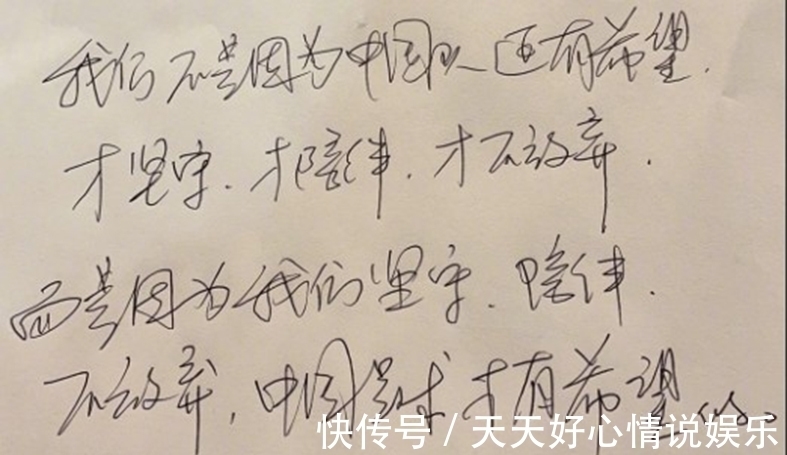 我们不是因为中国队还有希望.
才坚守.才陪伴.才不放弃.
而是因为我们坚守、陪伴.
不放弃,中国足球才有希望
快传号/天天好心情说娱乐